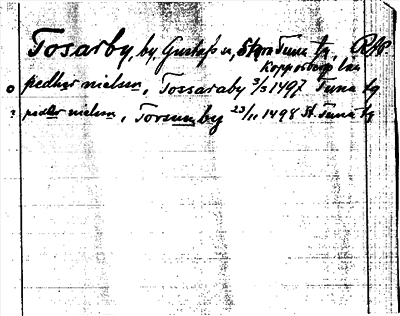 Tosarby, by, Gustafs sn, Stora Tuna tg, RAP
Kopparbergs län
o pedher nielsen, Tossaraby 3/3 1497 Tuna tg
? pedher nielsen, Torsunby 23/11 1498 St. Tuna tg